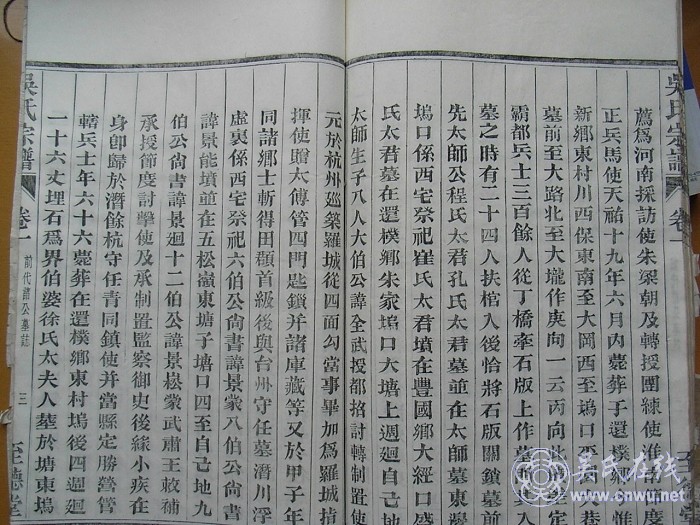 吳氏宗譜 卷一
薦爲河南採訪使朱梁朝及轉授團練使淮南節度
正兵馬使天祐十九年六月內薨葬于還樸鄉惟
新鄉東村川西保東南至大岡西至塢口平巷
墓前至大路北至大壠作庚向一云丙向此
霸都兵士三百餘人從丁橋牽石版上作墓
墓之時有二十四人扶棺入後恰將石版關鎖墓前
先太師公程氏太君孔氏太君墓並在太師墓東邊
塢口係西宅祭祀崔氏太君墳在豐國鄉大經口盛
氏太君墓在還樸鄉朱家塢口大塘上週迴自己地
太師生子八人大伯公諱全武授都招討轉制置使
元於杭州廵築羅城從四面勾當事畢加爲羅城指
揮使贈太傅管四門匙鎖并諸庫藏等又於甲子年
同諸鄉士斬得田頵首級後與台州守任墓潛川浮
虛裏係西宅祭祀六伯公尚書諱景蒙八伯公尚書
諱景能墳並在五松嶺東塘子塘口四至自己地九
伯公尚書諱景迴十二伯公諱景崧蒙武肅王敕補
承授節度討擊使及承制置監察御史後緣小疾在
身卽歸於潛餘杭守任青同鎮使并當縣定勝營管
轄兵士年六十六薨葬在還樸鄉東村塢後四週迴
一十六丈埋石爲界伯婆徐氏太夫人塟於塘東塢
吳氏宗譜 卷一 前代諸公墓誌 三 至德堂
吴氏网
www.cnwu.net